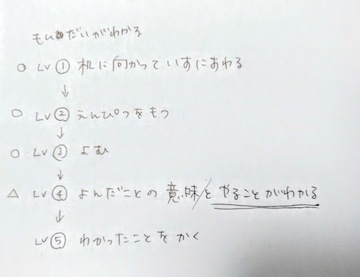 もんだいがわかる
○ LV ① 机に向かっていすにすわる
↓
○ LV ② えんぴつをもつ
↓
○ LV ③ よむ
↓
△ LV ④ よんだことの意味/とやることがわかる
↓
LV ⑤ わかったことをかく